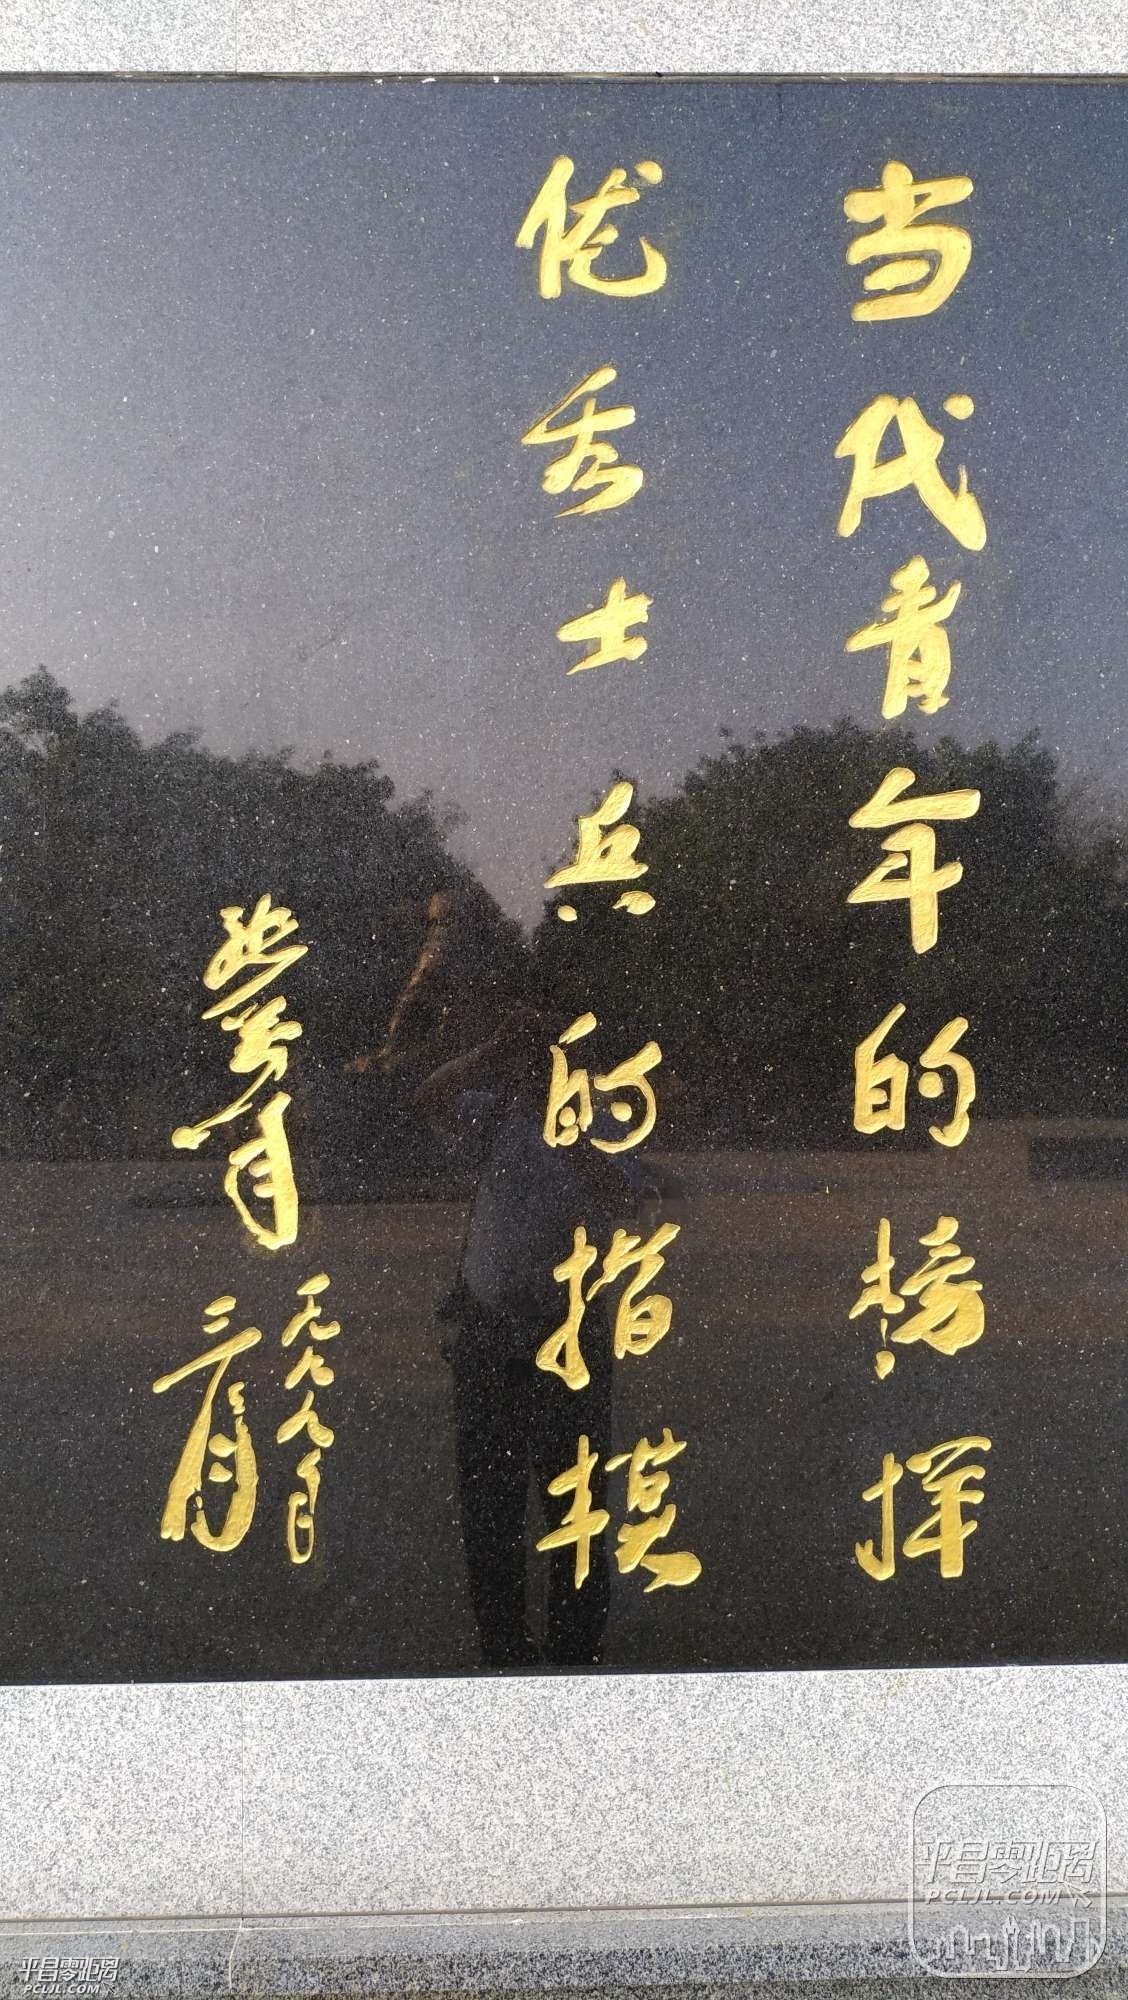 当代青年的榜样
优秀士兵的楷模
张万年
一九九九年
三月
平昌零距离
PCLJL.COM
平昌零距离
PCLJL.COM